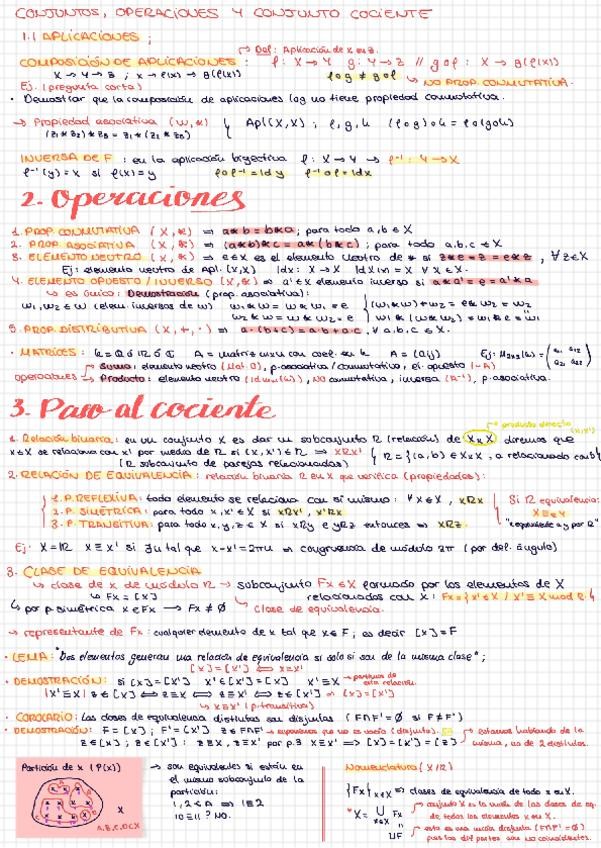 CONJUNTOS, OPERACIONES Y CONJUNTO COCIENTE
1.1 APLICACIONES ;
→ Def: Aplicación de X en Z.
COMPOSICIÓN DE APLICACIONES : f: X → Y g: Y → Z // g o f : X → g(f(x))
X → Y → Z ; x → f(x) → g(f(x)) f o g ≠ g o f → NO PROP. CONMUTATIVA.
Ej. (pregunta corta)
• Demostrar que la composición de aplicaciones f o g no tiene propiedad conmutativa.
→ Propiedad asociativa Apl(X,X) ; f, g, h (f o g) o h = f o (g o h)
INVERSA DE F : en la aplicación biyectiva f: X → Y → f⁻¹ : Y → X
f⁻¹(y) = x si f(x) = y f o f⁻¹ = Id y f⁻¹ o f = Id x
2. Operaciones
1. PROP CONMUTATIVA (X, *) ⇒ a * b = b * a ; para todo a, b ∈ X
2. PROP ASOCIATIVA (X, *) ⇒ (a * b) * c = a * (b * c) ; para todo a, b, c ∈ X
3. ELEMENTO NEUTRO (X, *) ⇒ e ∈ X es el elemento neutro de * si z * e = z = e * z , ∀ z ∈ X
Ej: elemento neutro de Apl. (X,X) Idx: X → X Idx(x) = X ∀ X ∈ X.
4. ELEMENTO OPUESTO / INVERSO (X, *) ⇒ a' ∈ X elemento inverso si a * a' = e = a' * a
↳ es único: Demostración (prop. asociativa):
w₁, w₂ ∈ W (elem. inversos de w)
5. PROP. DISTRIBUTIVA (X, +, ·) ⇒ a · (b + c) = a · b + a · c , ∀ a, b, c ∈ X.
• MATRICES : k = Q ó R ó C A = matriz mxn con coef. en k A = (aij)
Suma: elemento neutro (Mat. 0), p-asociativa / conmutativa, el. opuesto (-A)
operaciones → Producto: elemento neutro NO conmutativa, inversa (A⁻¹), p-asociativa.
3. Paso al cociente
→ producto directo (x, x')
1. Relación binaria: en un conjunto X es dar un subconjunto R (relación) de X x X diremos que
x ∈ X se relaciona con x' por medio de R si (x, x') ∈ R ⇒ xRx' R = {(a, b) ∈ X x X, a relacionado con b}
(R subconjunto de parejas relacionadas)
2. RELACIÓN DE EQUIVALENCIA: relación binaria R en X que verifica (propiedades):
1. P. REFLEXIVA: todo elemento se relaciona con si mismo : ∀ x ∈ X , xRx
2. P. SIMÉTRICA: para todo x, x' ∈ X si xRx', x'Rx
3. P. TRANSITIVA: para todo x, y, z ∈ X si xRy e yRz entonces ⇒ xRz.
Si R equivalencia:
X ≡ Y
"equivalente a y por R"
Ej: X = R x ≡ x' si ∃ n tal que x - x' = 2πn ⇒ congruencia de módulo 2π (por def. ángulo)
3. CLASE DE EQUIVALENCIA
↳ clase de x de módulo R → subconjunto Fx ∈ X formado por los elementos de X
↳ Fx = [x] relacionados con x : Fx = {x' ∈ X / x' ≡ x mod R}
↳ por p. simétrica x ∈ Fx → Fx ≠ ∅ ↳ clase de equivalencia.
→ representante de Fx: cualquier elemento de x tal que x ∈ F ; es decir [x] = F
• LEMA: "Dos elementos generan una relación de equivalencia si solo si son de la misma clase" ;
[x] = [x'] ⇔ x ≡ x'
• DEMOSTRACIÓN: si [x] = [x'] x' ∈ [x'] = [x] x' ≡ x → partimos de esta relación.
x' ≡ x z ∈ [x] ⇔ z ≡ x ⇔ z ≡ x' ⇔ z ∈ [x'] ⇒ [x] = [x']
↳ x ≡ x' (p. transitiva)
• COROLARIO: Las clases de equivalencia distintas son disjuntas (F ∩ F' = ∅ si F ≠ F')
• DEMOSTRACIÓN: F = [x] ; F' = [x'] z ∈ F ∩ F' → suponemos que no es vacía (disjunta). → estamos hablando de la
z ∈ [x] ; z ∈ [x'] : z ≡ x, z ≡ x' por p.3 x ≡ x' ⇒ [x] = [x'] = [z] misma, no de 2 distintas.
Partición de x (P(x))
A, B, C, D ⊂ X
→ son equivalentes si están en
el mismo subconjunto de la
partición:
1, 2 ∈ A ⇒ 1 ≡ 2
10 ≡ 11 ? No.
Nomenclatura (X/R)
{Fx} x ∈ X ⇒ clases de equivalencia de todo x en X.
* X = ∪ Fx → conjunto X es la unión de las clases de eq.
x ∈ X de todos los elementos x en X.
→ esto es una unión disjunta (F ∩ F' = ∅)
pues las diferentes son no coincidentes.